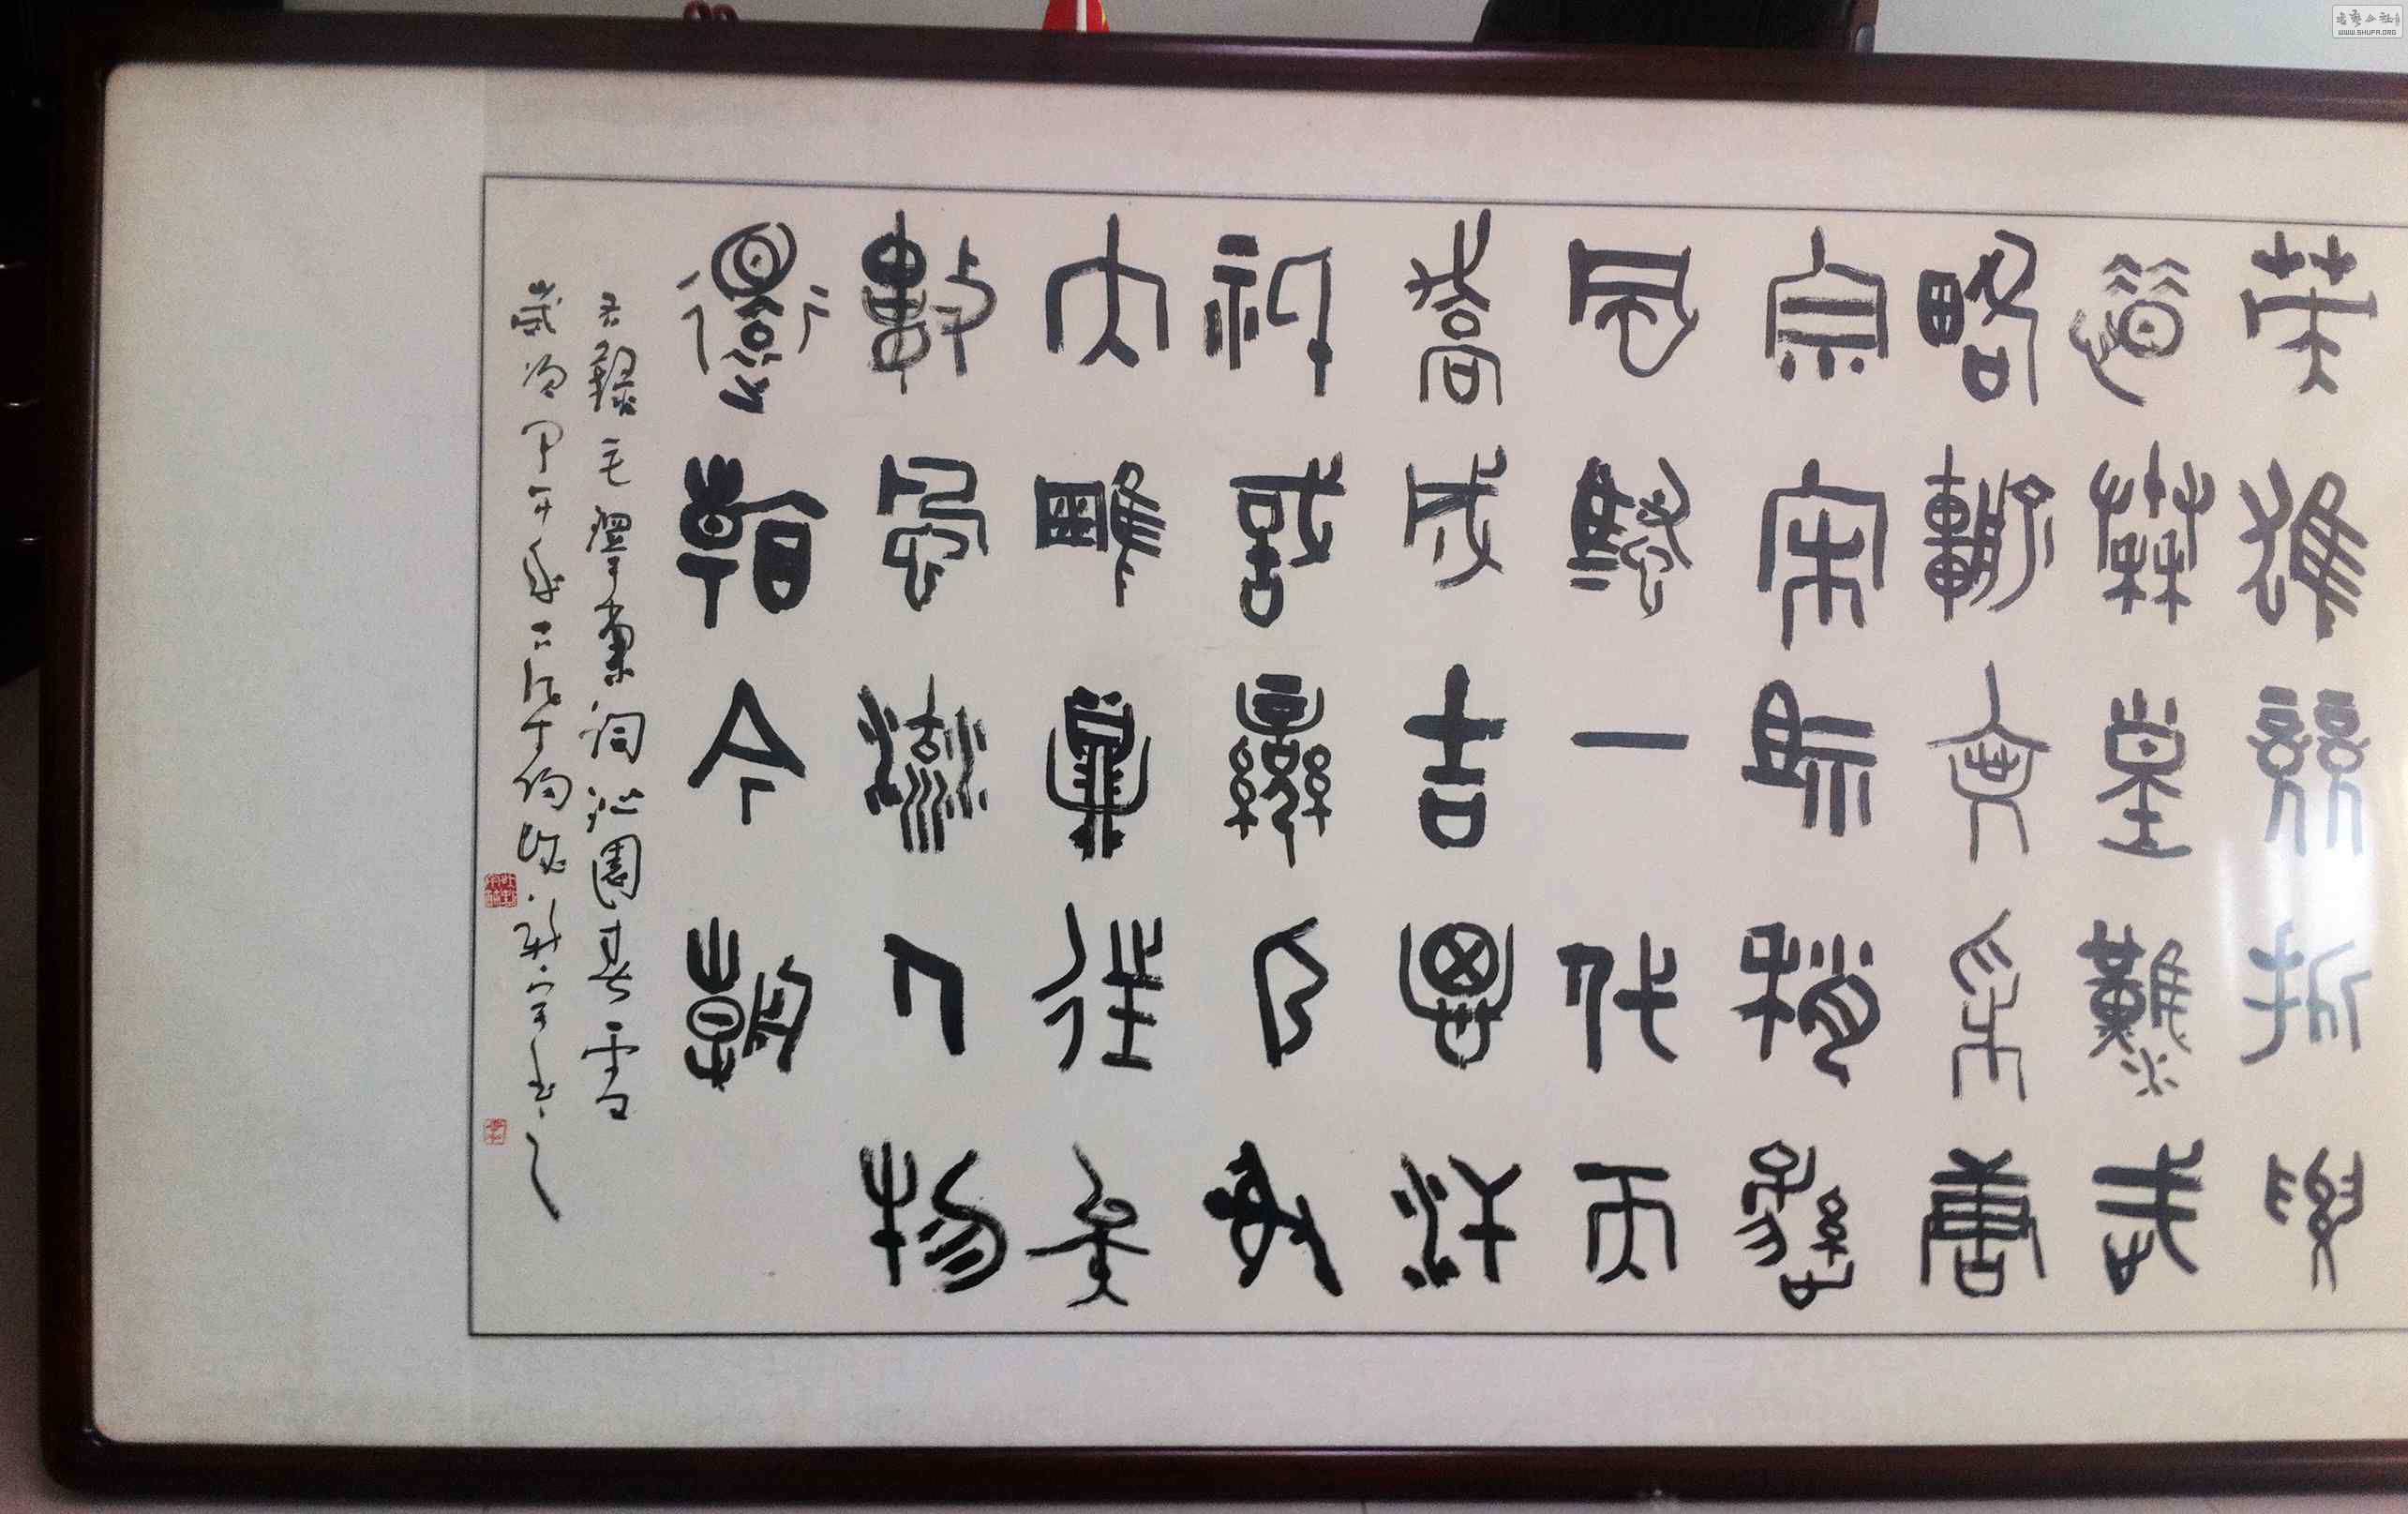 英雄競折腰
惜秦皇漢武
略輸文采唐
宗宋祖稍遜
風騷一代天
驕成吉思汗
祇識彎弓射
大雕俱往矣
數風流人物
還看今朝
右錄毛澤東詞沁園春雪
歲次甲午年
WWW.SHUFA.ORG